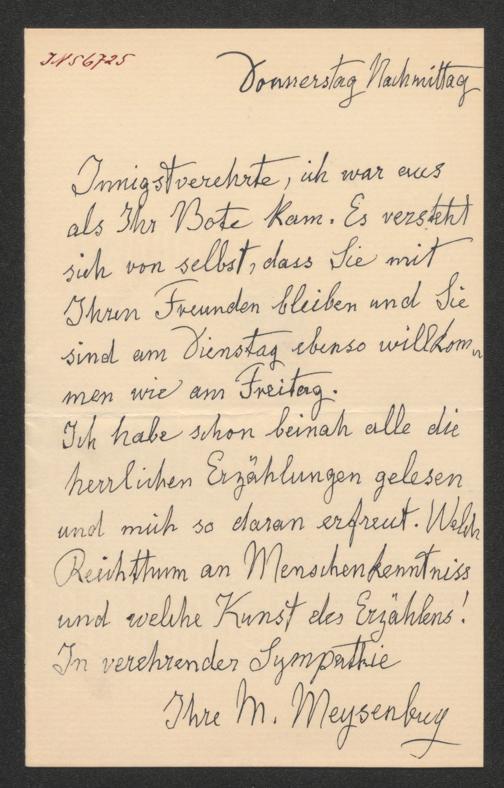 IN 56725
Donnerstag Nachmittag
Innigstverehrte, ich war aus
als Ihr Bote kam. Es versteht
sich von selbst, dass Sie mit
Ihren Freunden bleiben und Sie
sind am Dienstag ebenso willkom-
men wie am Freitag.
Ich habe schon beinah alle die
herrlichen Erzählungen gelesen
und mich so daran erfreut. Welch
Reichthum an Menschenkenntniss
und welche Kunst des Erzählens!
In verehrender Sympathie
Ihre M. Meysenbug